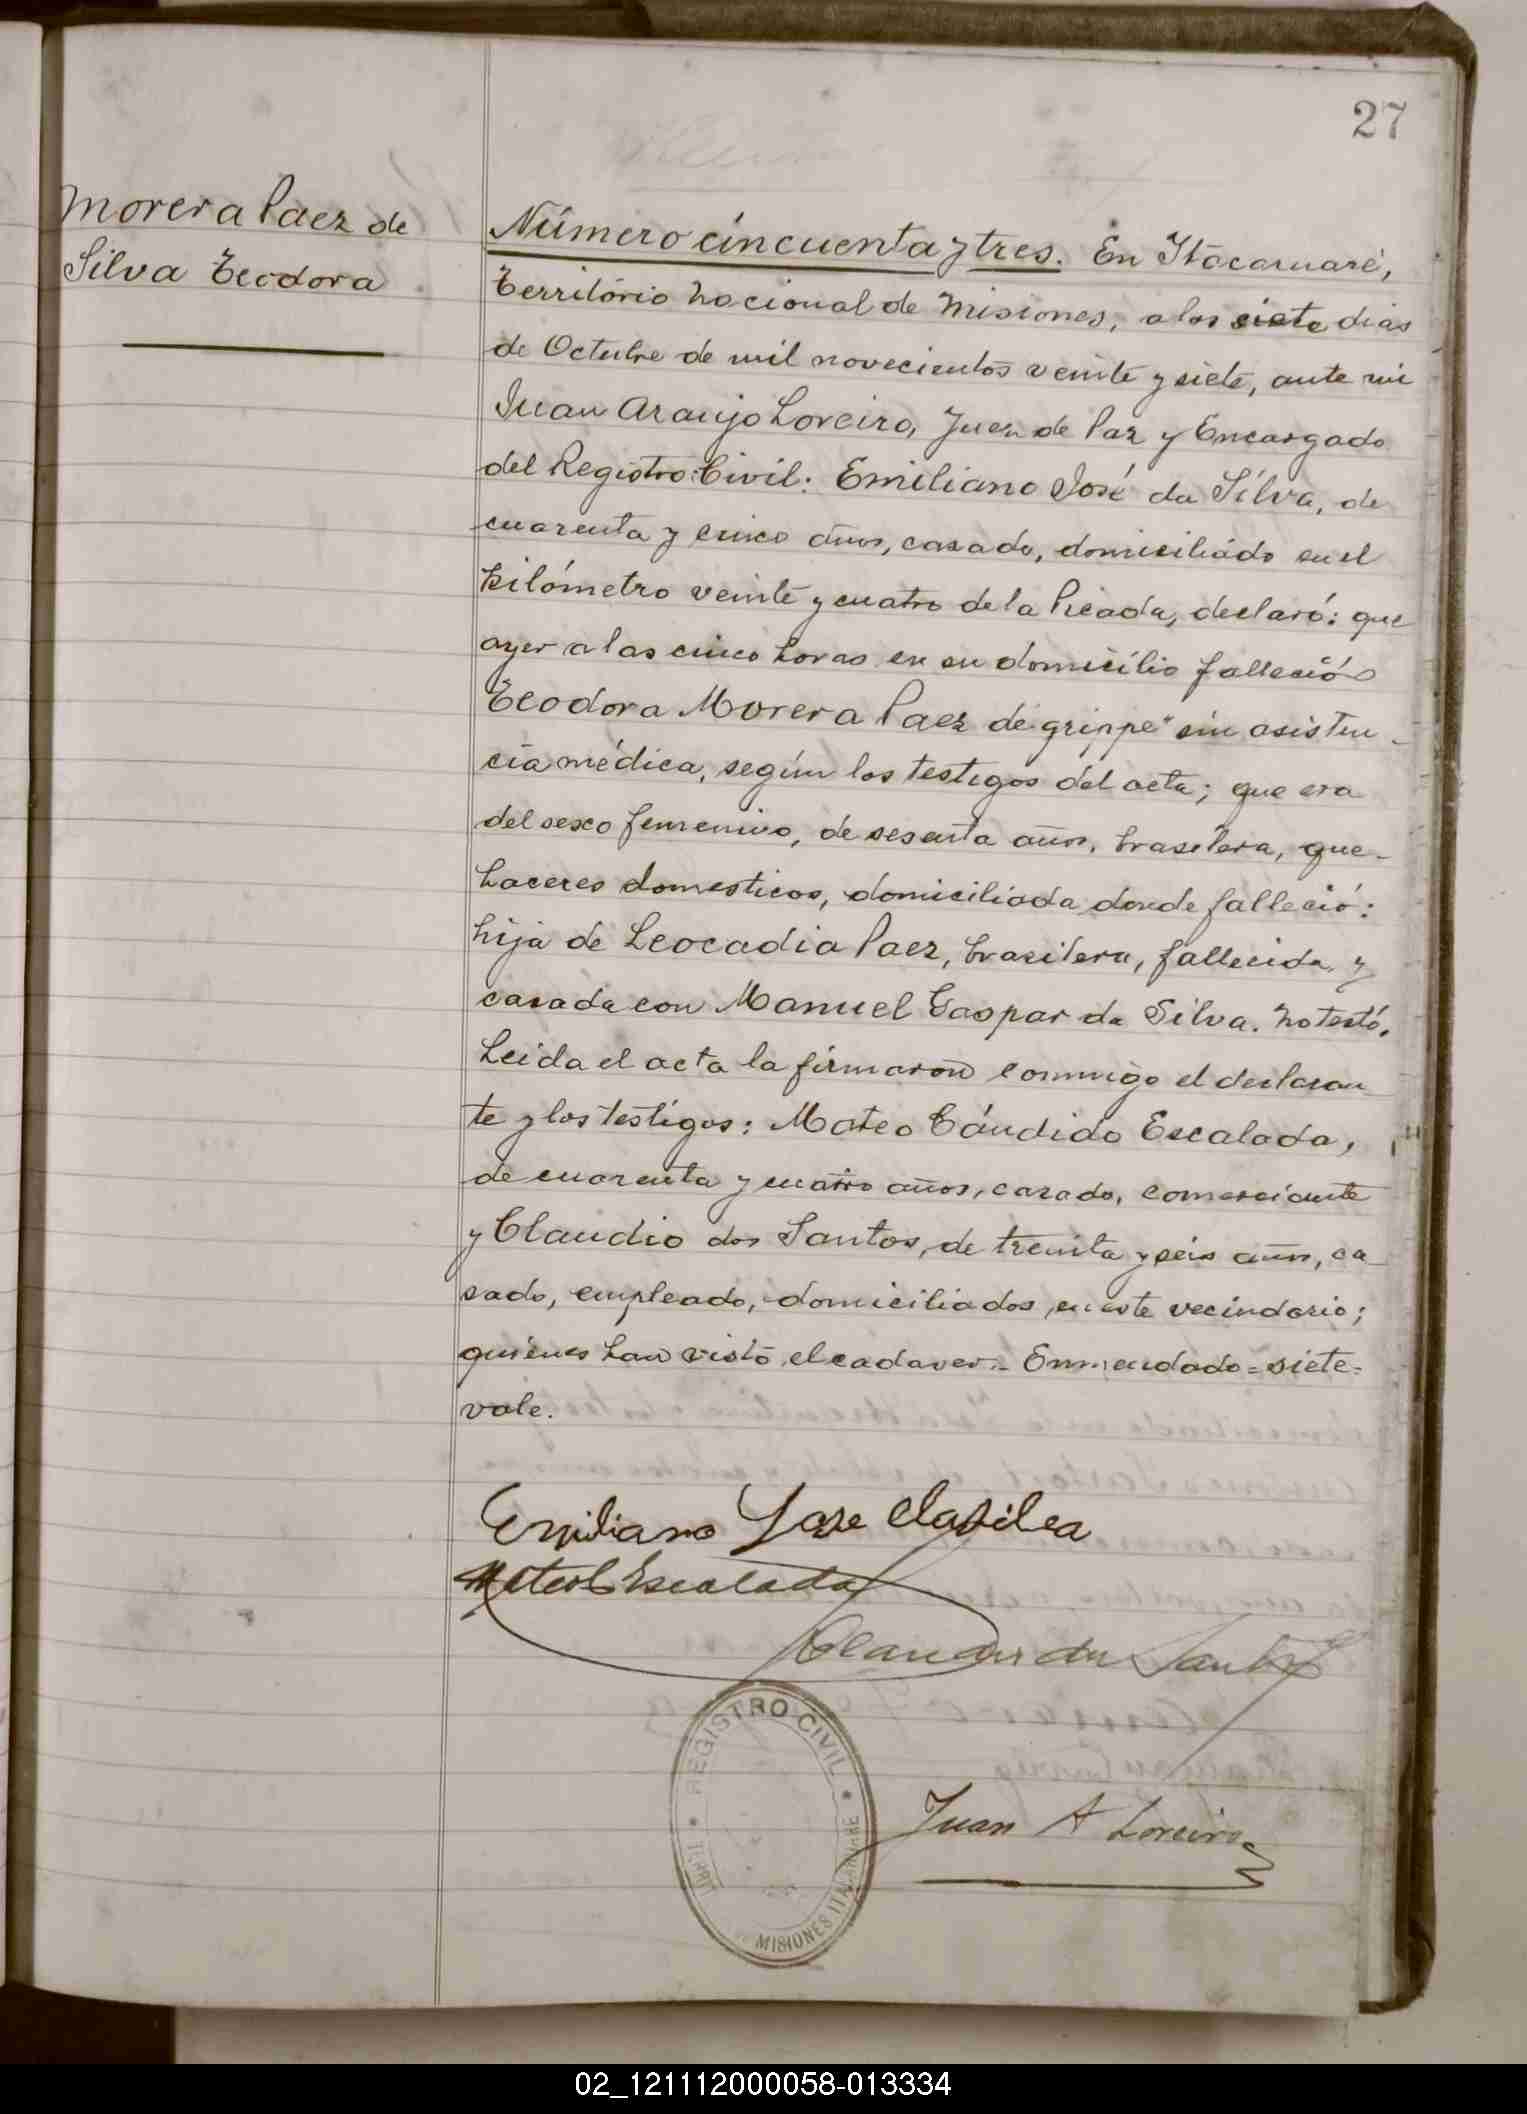 27
Morera Paez de
Silva Teodora
Número cincuenta y tres. En Itacaruaré,
Território nacional de Misiones, a los siete dias
de Octubre de mil novecientos veinte y siete, ante mi
Juan Araujo Loreiro, Juez de Paz y Encargado
del Registro Civil: Emiliano José da Silva, de
cuarenta y cinco años, casado, domiciliádo en el
kilómetro veinte y cuatro de la Picada, declaró: que
ayer a las cinco horas en su domicilio falleció
Teodora Morera Paez de "grippe" sin asisten-
cia médica, según los testigos del acta; que era
del sexo femenino, de sesenta años, brasilera, que-
haceres domesticos, domiciliada donde falleció:
hija de Leocadia Paez, brasilera, fallecida y
casada con Manuel Gaspar da Silva. No testó.
Leida el acta la firmaron conmigo el declaran-
te y los testigos: Mateo Cándido Escalada,
de cuarenta y cuatro años, casado, comerciante
y Claudio dos Santos, de treinta y seis años, ca-
sado, empleado, domiciliados en este vecindario;
quienes han visto el cadaver.- Enmendado=siete=
vale.
Emiliano Jose da Silva
Mateo C Escalada
Claudio dos Santos
Juan A Loreiro
REGISTRO CIVIL
MISIONES ITACARUARE
02_121112000058-013334